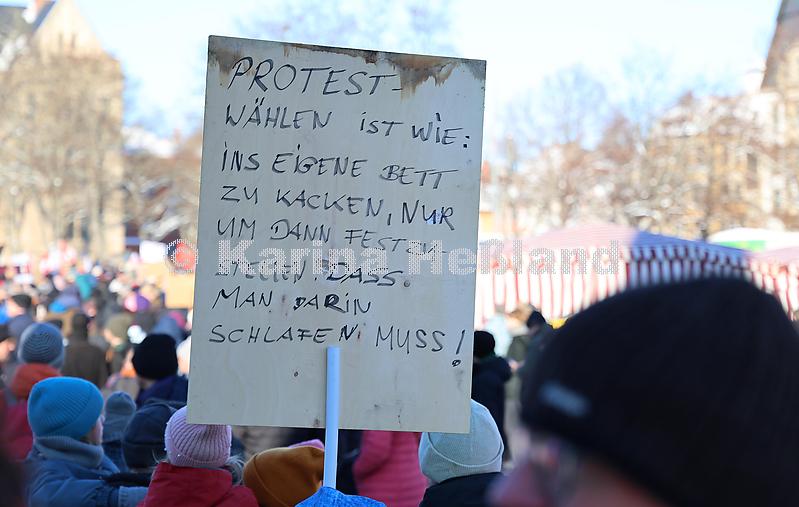 PROTEST-
WÄHLEN IST WIE:
INS EIGENE BETT
ZU KACKEN, NUR
UM DANN FESTZU-
STELLEN, DASS
MAN DARIN
SCHLAFEN MUSS!
© Karina Heßland